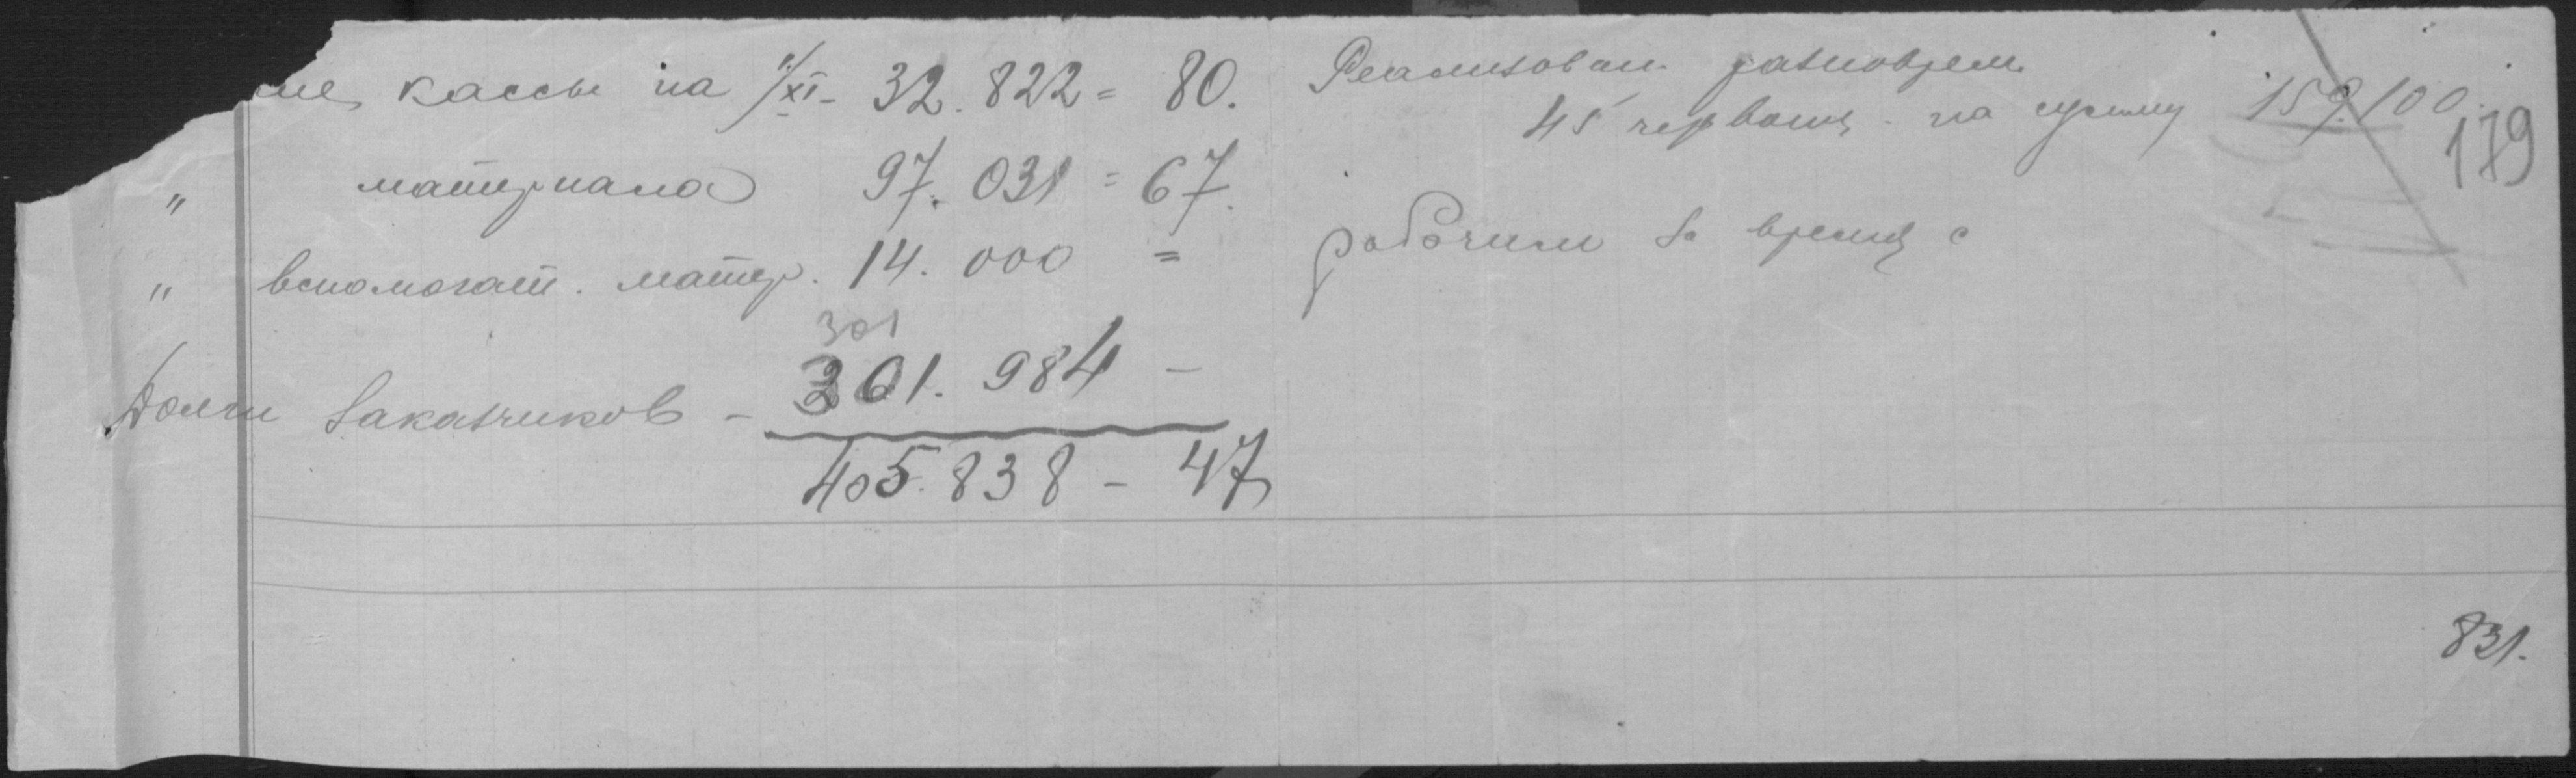 ие кассы на 1/XI - 32.822 = 80.
" материала 97.031 = 67.
" вспомогат. матер. 14.000 =
301
Долги заказчиков - 301.984 -
405.838 - 47
Реализован. разноврем.
45 червонц. на сумму 159.100
179
рабочим за время с
831.